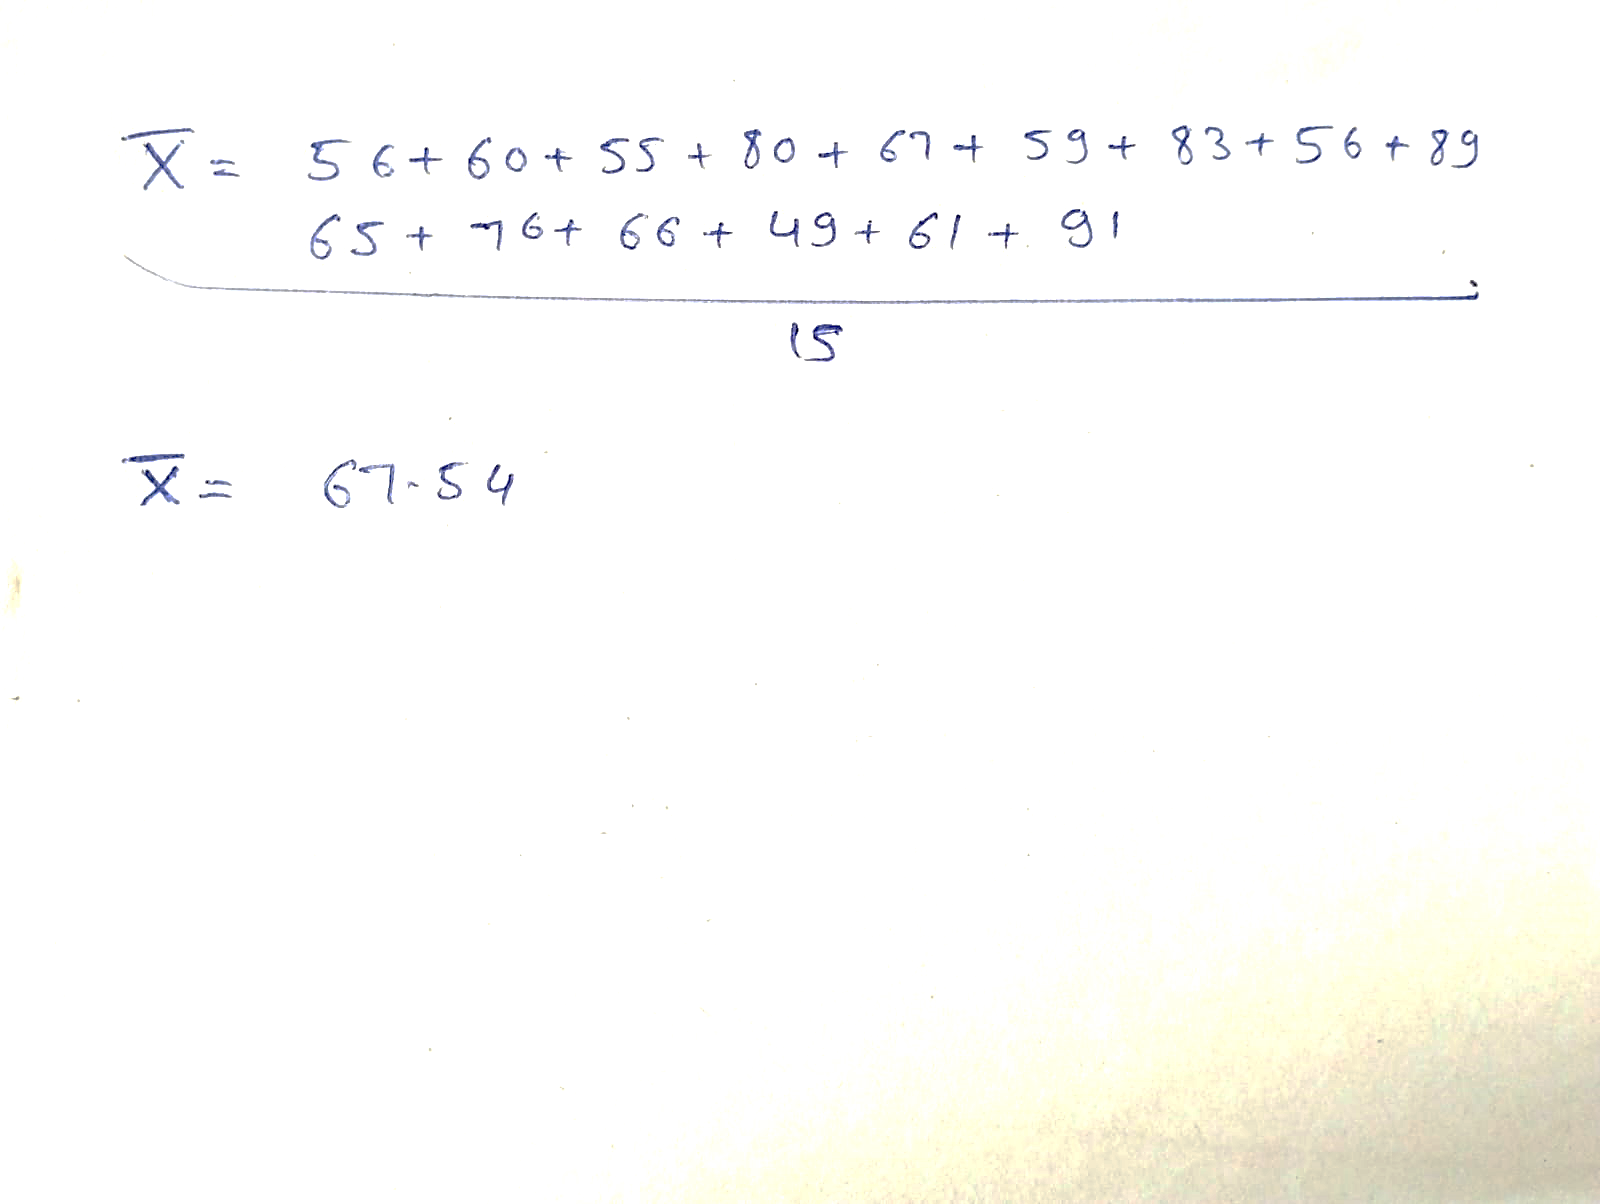 X̅ = 56+ 60+ 55 + 80 + 67+ 59+ 83+ 56 + 89
65 + 76+ 66 + 49 + 61 + 91
15
X̅ = 67.54